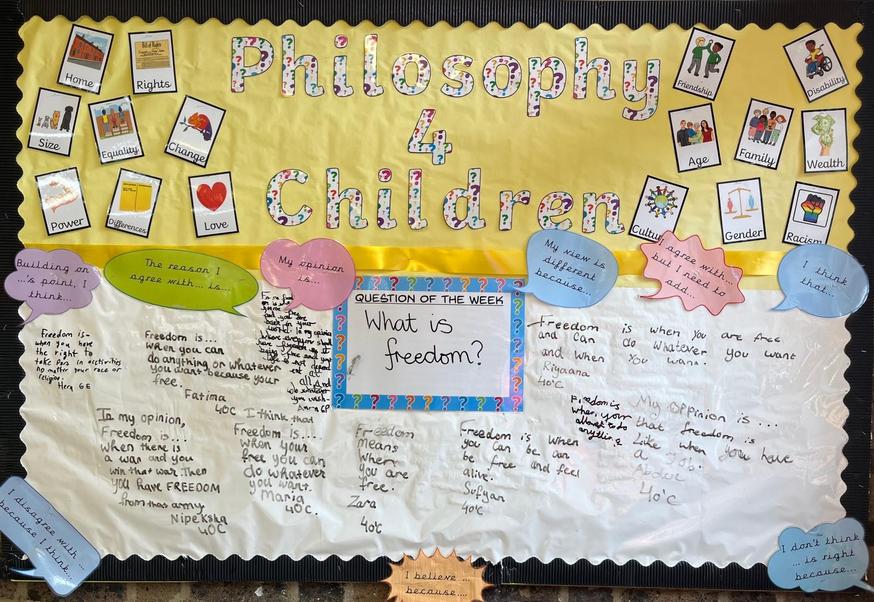 Philosophy
4
Children
Home
Bill of Rights
Rights
Size
Equality
Change
Power
Differences
Love
Friendship
Disability
Age
Family
Wealth
Culture
Gender
Racism
Building on
...'s point, I
think...
The reason I
agree with... is...
My opinion
is...
My view is
different
because...
I agree with...
but I need to
add...
I think
that...
QUESTION OF THE WEEK
What is
freedom?
Freedom is-
when you have
the right to
take pars in activities
no matter your race or
religion
6E
Freedom is...
when you can
do anything or whatever
you want because your
free.
Fatima
4OC
In my opinion,
Freedom is...
when there is
a war and you
win that war. Then
you have FREEDOM
from that army
Nipeksha
4OC
I think that
Freedom is....
when your
free you can
do whatever
you want.
Maria
4OC.
Freedom
means
When
you are
free.
Zara
40°C
Freedom is when
you can be an
be free and feel
alive.
Sufyan
40°C
Freedom is when you are free
and can do whatever you want
and when you want.
Riyaana
40°C
Freedom is
when your
allowed to do
anything
My oppinion is...
that freedom is
Like when you have
a job.
40°C
I disagree with ...
because I think...
I believe ...
because....
I don't think
... is right
because...